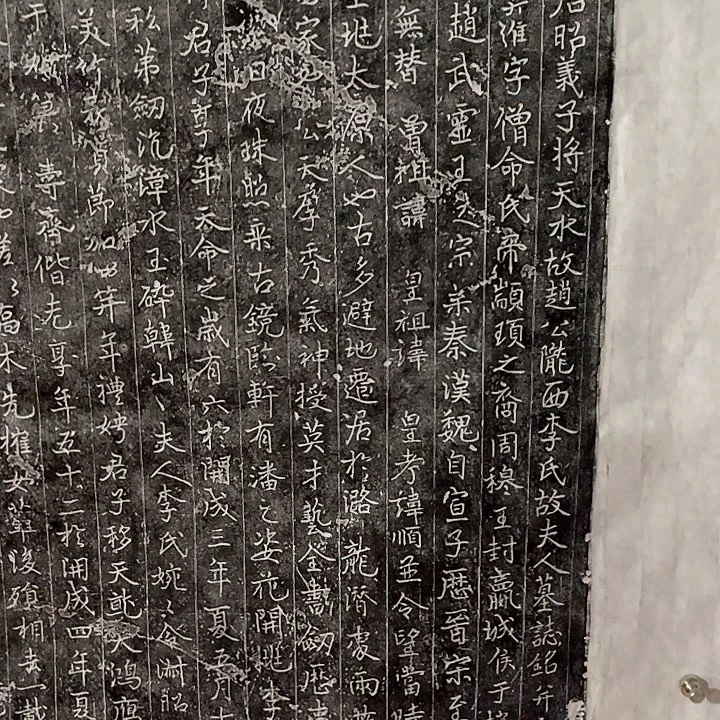 昭義子將天水故趙公隴西李氏故夫人墓誌銘并
淮字僧命氏帝顓頊之裔周穆王封嬴城侯于
趙武靈王之宗亲秦漢魏自宣子歷晉宗至
無替 曾祖諱 皇祖諱 皇考諱順並令望當時
地太原人也古多避地遷居於潞龍潛處兩
家 公天孳秀氣神授英才藝全劃劒歷
日夜珠照乘古鏡臨軒有潘之姿花開桃李
君子享年天命之歲有六於開成三年夏五月
私弟劒沉漳水玉碎韓山〻夫人李氏婉〻令淑昭
美竹 貞節加以笄年禮娉君子移天能大鴻
壽齊偕老享年五十二於開成四年夏
嗟〻福木先摧女蘿後殞相去一載